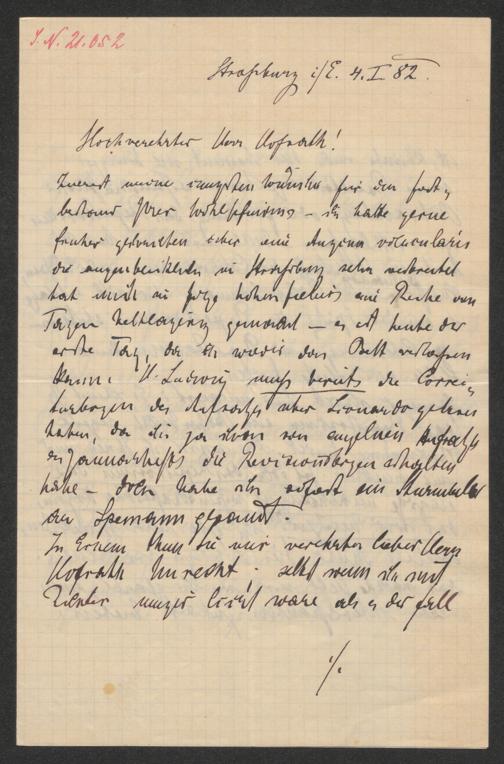 J. N. 21.052
Strassburg i/E. 4. I 82.
Hochverehrter Herr Hofrath!
Zuerst meine innigsten Wünsche für den Fort-
bestand Ihres Wohlbefindens – ich hatte gerne
früher geschrieben aber eine Angina
die augenblicklich in Strassburg sehr verbreitet
hat mich in Folge hohen Fiebers eine Reihe von
Tagen bettlägerig gemacht – es ist heute der
erste Tag, da ich wieder das Bett verlassen
kann. H. Ludwig muss bereits die Correc-
turbogen des Aufsatzes über Leonardo gelesen
haben, da ich ja schon von einzelnen Aufsätzen
des Januarheftes die Revisionsbogen erhalten
habe – doch habe ich sofort ein
an Spemann gesandt.
In Einem thun Sie mir verehrter lieber Herr
Hofrath Unrecht: selbst wenn ich mit
Richter liirt wäre als es der Fall
./.